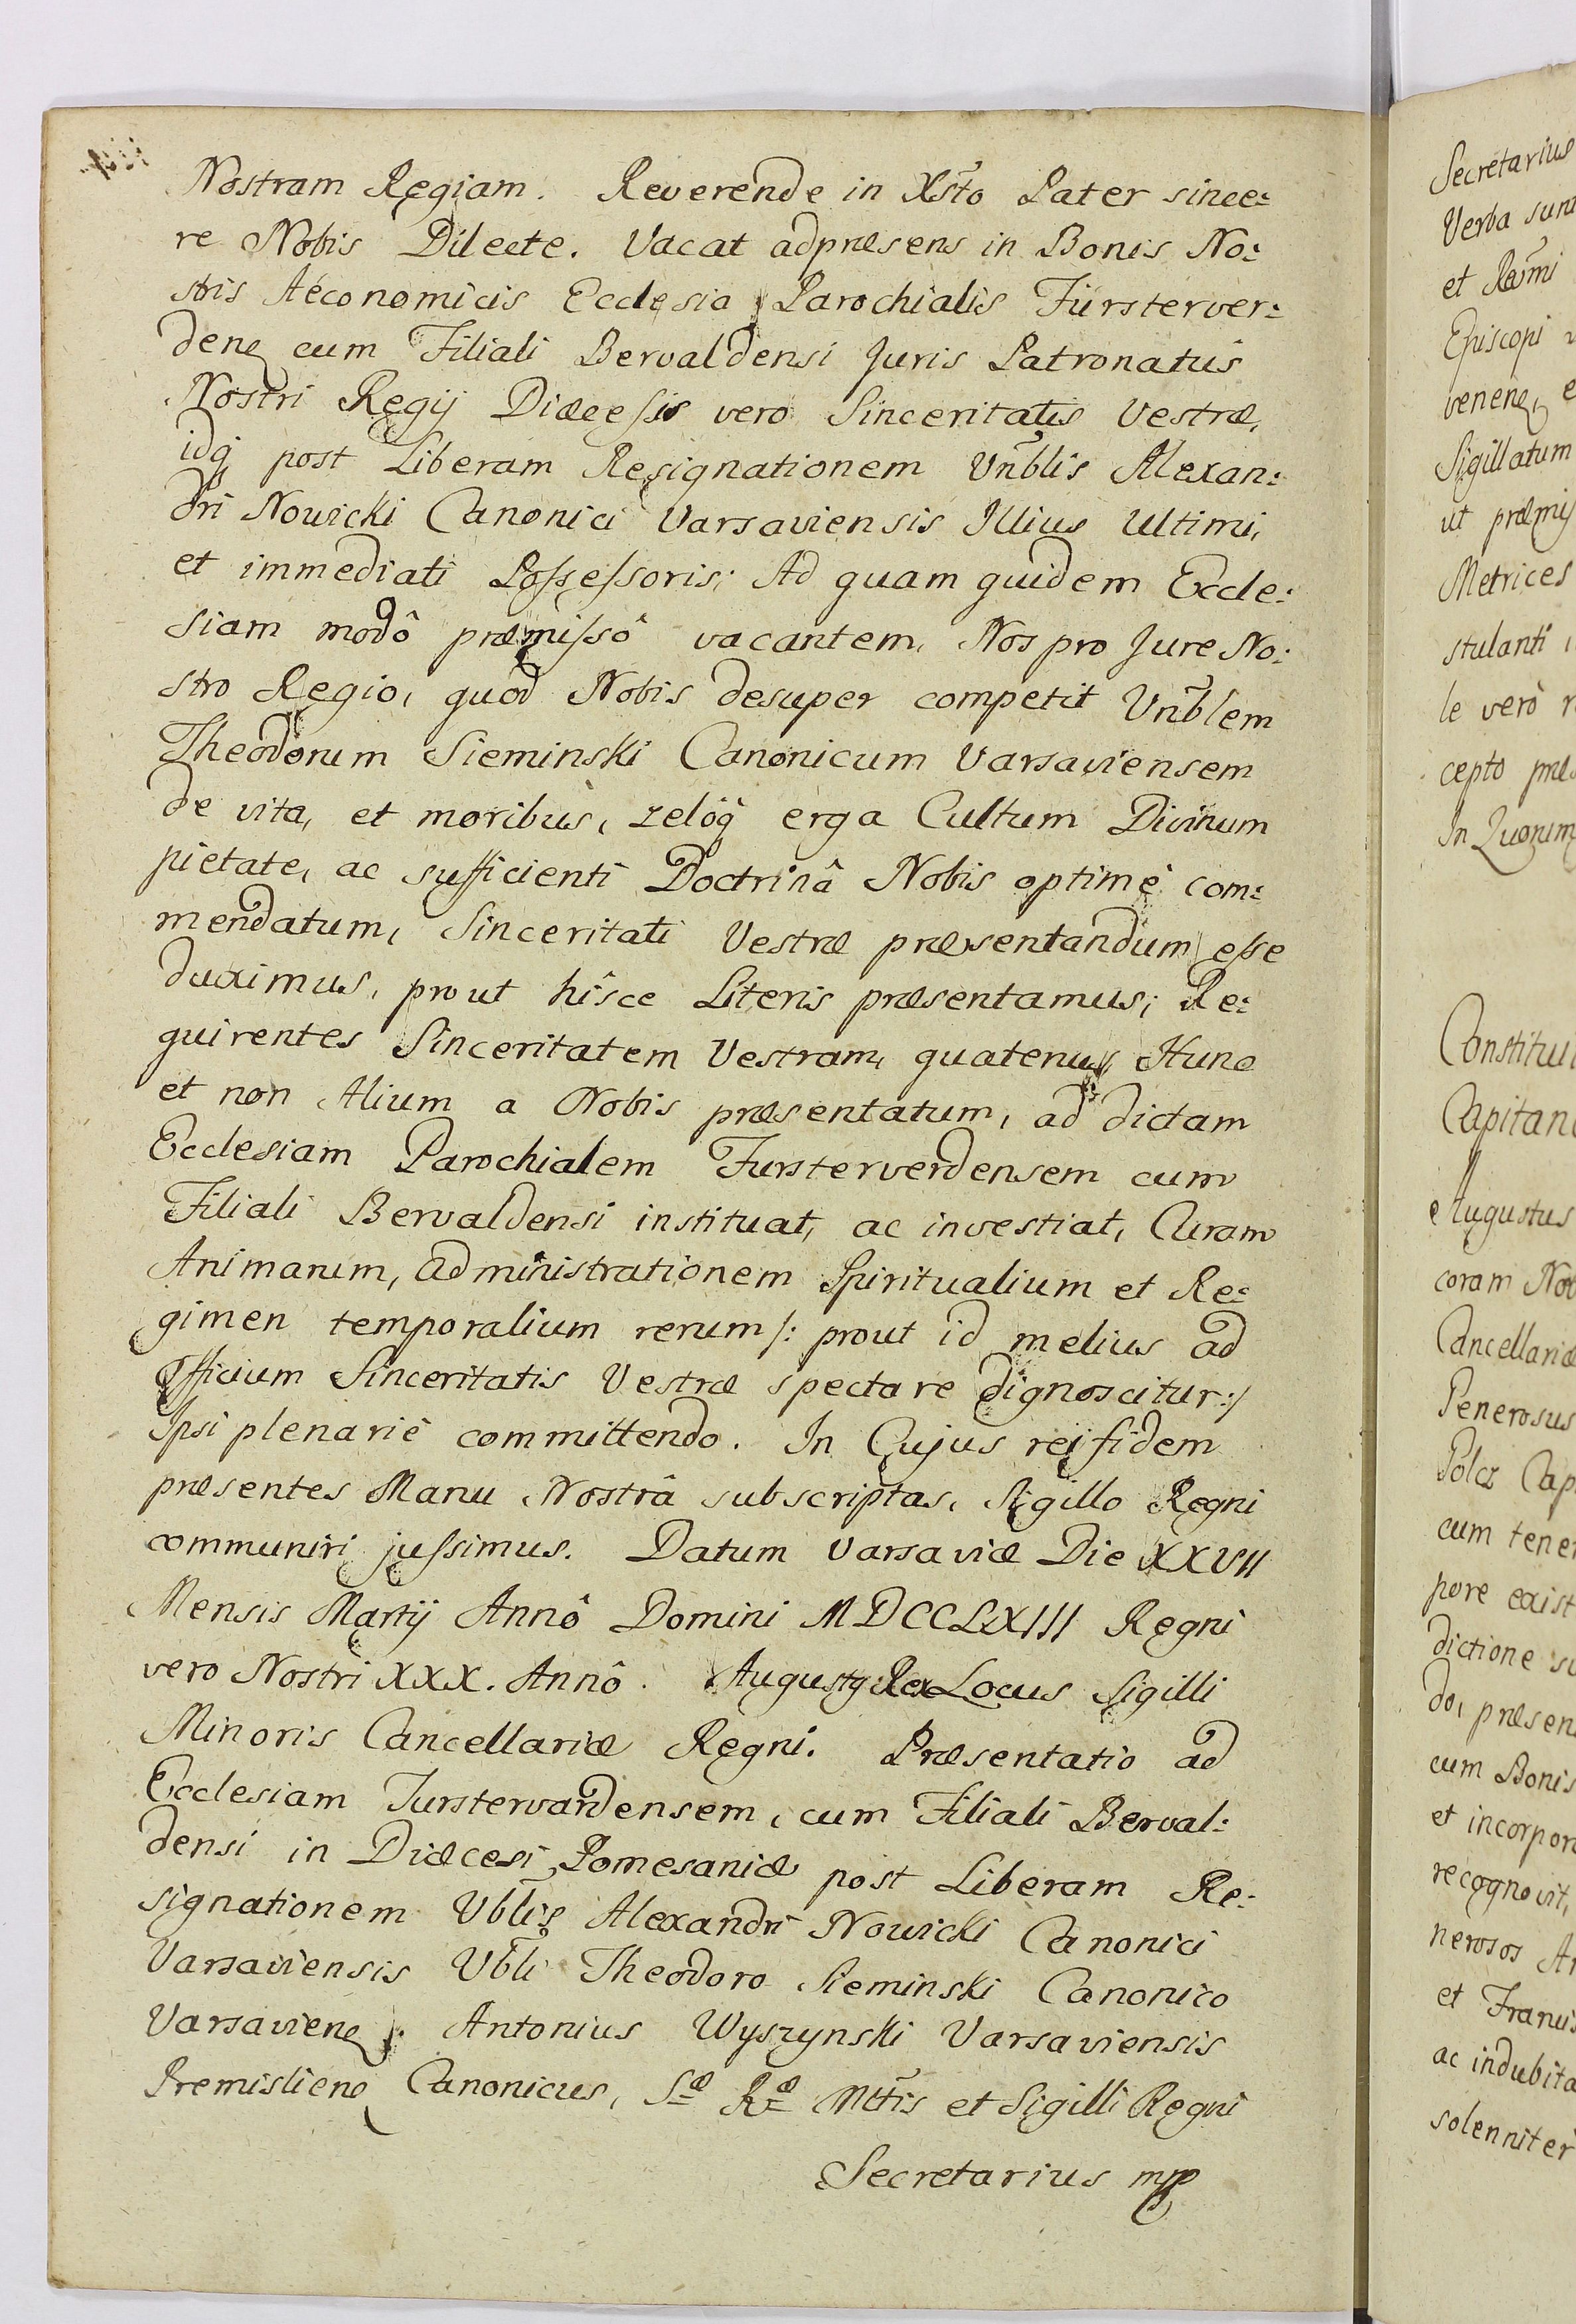 Nostram Regiam. Reverende in Xs̃to Pater since:
re Nobis Dilecte. Vacat adpræsens in Bonis No:
stris Aeconomicis Ecclesia Parochialis Fürsterver:
denę cum Filiali Bervaldensi Juris Patronatus
Nostri Regij Diæcesis vero Sinceritatis Vestræ,
idq́ post Liberam Resignationem Vñblis Alexan:
dri Nowicki Canonici Varsaviensis Illius Ultimi,
et immediati Possessoris; Ad quam quidem Eccle:
siam modô præmissô vacantem, Nos pro Jure No:
stro Regio, quod Nobis desuper competit Vñblem
Theodorum Sieminski Canonicum Varsaviensem
de vita, et moribus, zelóq́ erga Cultum Divinum
pietate, ac sufficienti Doctrinâ Nobis optimè com:
mendatum, Sinceritati Vestræ præsentandum esse
duximus, prout hîsce Literis præsentamus; Re:
quirentes Sinceritatem Vestram, quatenus Hunc
et non Alium a Nobis præsentatum, ad dictam
Ecclesiam Parochialem Fursterverdensem cum
Filiali Bervaldensi instituat, ac investiat, Curam
Animarum, administrationem Spiritualium et Re:
gimen temporalium rerum /: prout id melius ad
Officium Sinceritatis Vestræ spectare dignoscitur :/
Ipsi plenariè committendo. In Cujus rei fidem
præsentes Manu Nostrâ subscriptas, Sigillo Regni
communiri jussimus. Datum Varsaviæ Die XXVII
Mensis Martij Annô Domini MDCCLXIII Regni
vero Nostri XXX. Annô. Augustq Rex Locus Sigilli
Minoris Cancellariæ Regni. Præsentatio ad
Ecclesiam Furstervardensem, cum Filiali Berval:
densi in Diæcesi Pomesaniæ post Liberam Re:
signationem Vb̃lis Alexandri Nowicki Canonici
Varsaviensis Vb̃li Theodoro Sieminski Canonico
Varsavienę. Antonius Wyszynski Varsaviensis
Premislienę Canonicus, Sæ Ræ Mt̃tis et Sigilli Regni
Secretarius mpp
Secretarius
Verba sunt
et Rãmi
Episcopi
venenę, e
Sigillatum
ut præmis
Metrices
stulanti
le verò r
cepto præs
In Quorum
Constitui
Capitan
Augustus
coram No
Cancellariæ
Generosus
Polcz Cap
cum tene
pore exist
dictione su
do, præsen
cum Bonis
et incorpor
recognovit,
nerosos A
et Francis
ac indubita
solenniter